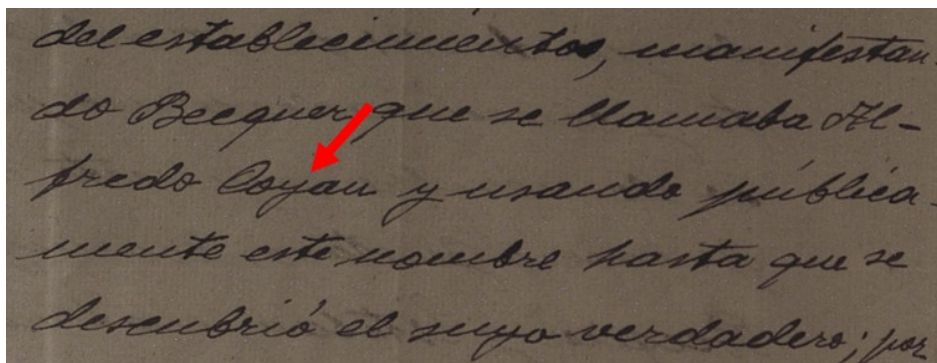 del establecimiento, manifestan-
do Becquer que se llamaba Al-
fredo Coyan y usando pública-
mente este nombre hasta que se
descubrió el suyo verdadero; por